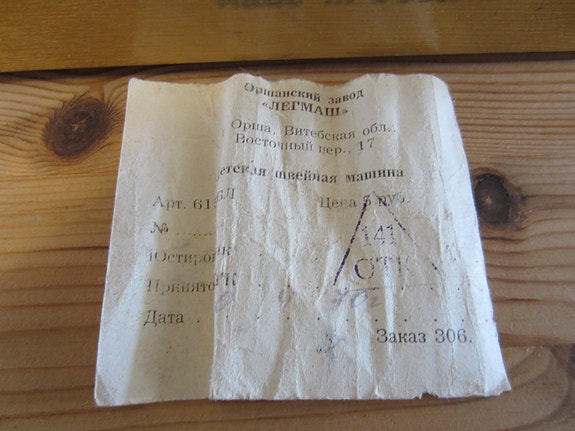 Оршанский завод
«ЛЕГМАШ»
Орша, Витебская обл.
Восточный пер., 17
етская швейная машина
Арт. 61 БЛ Цена 5 руб.
№
141
Юстиров ик
ОТК
Принято ТК
Дата
Заказ 306.